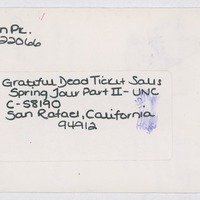 n Pk.
22066
Grateful Dead Ticket Sales
Spring Tour Part II - UNC
C-S8190
San Rafael, California
94912